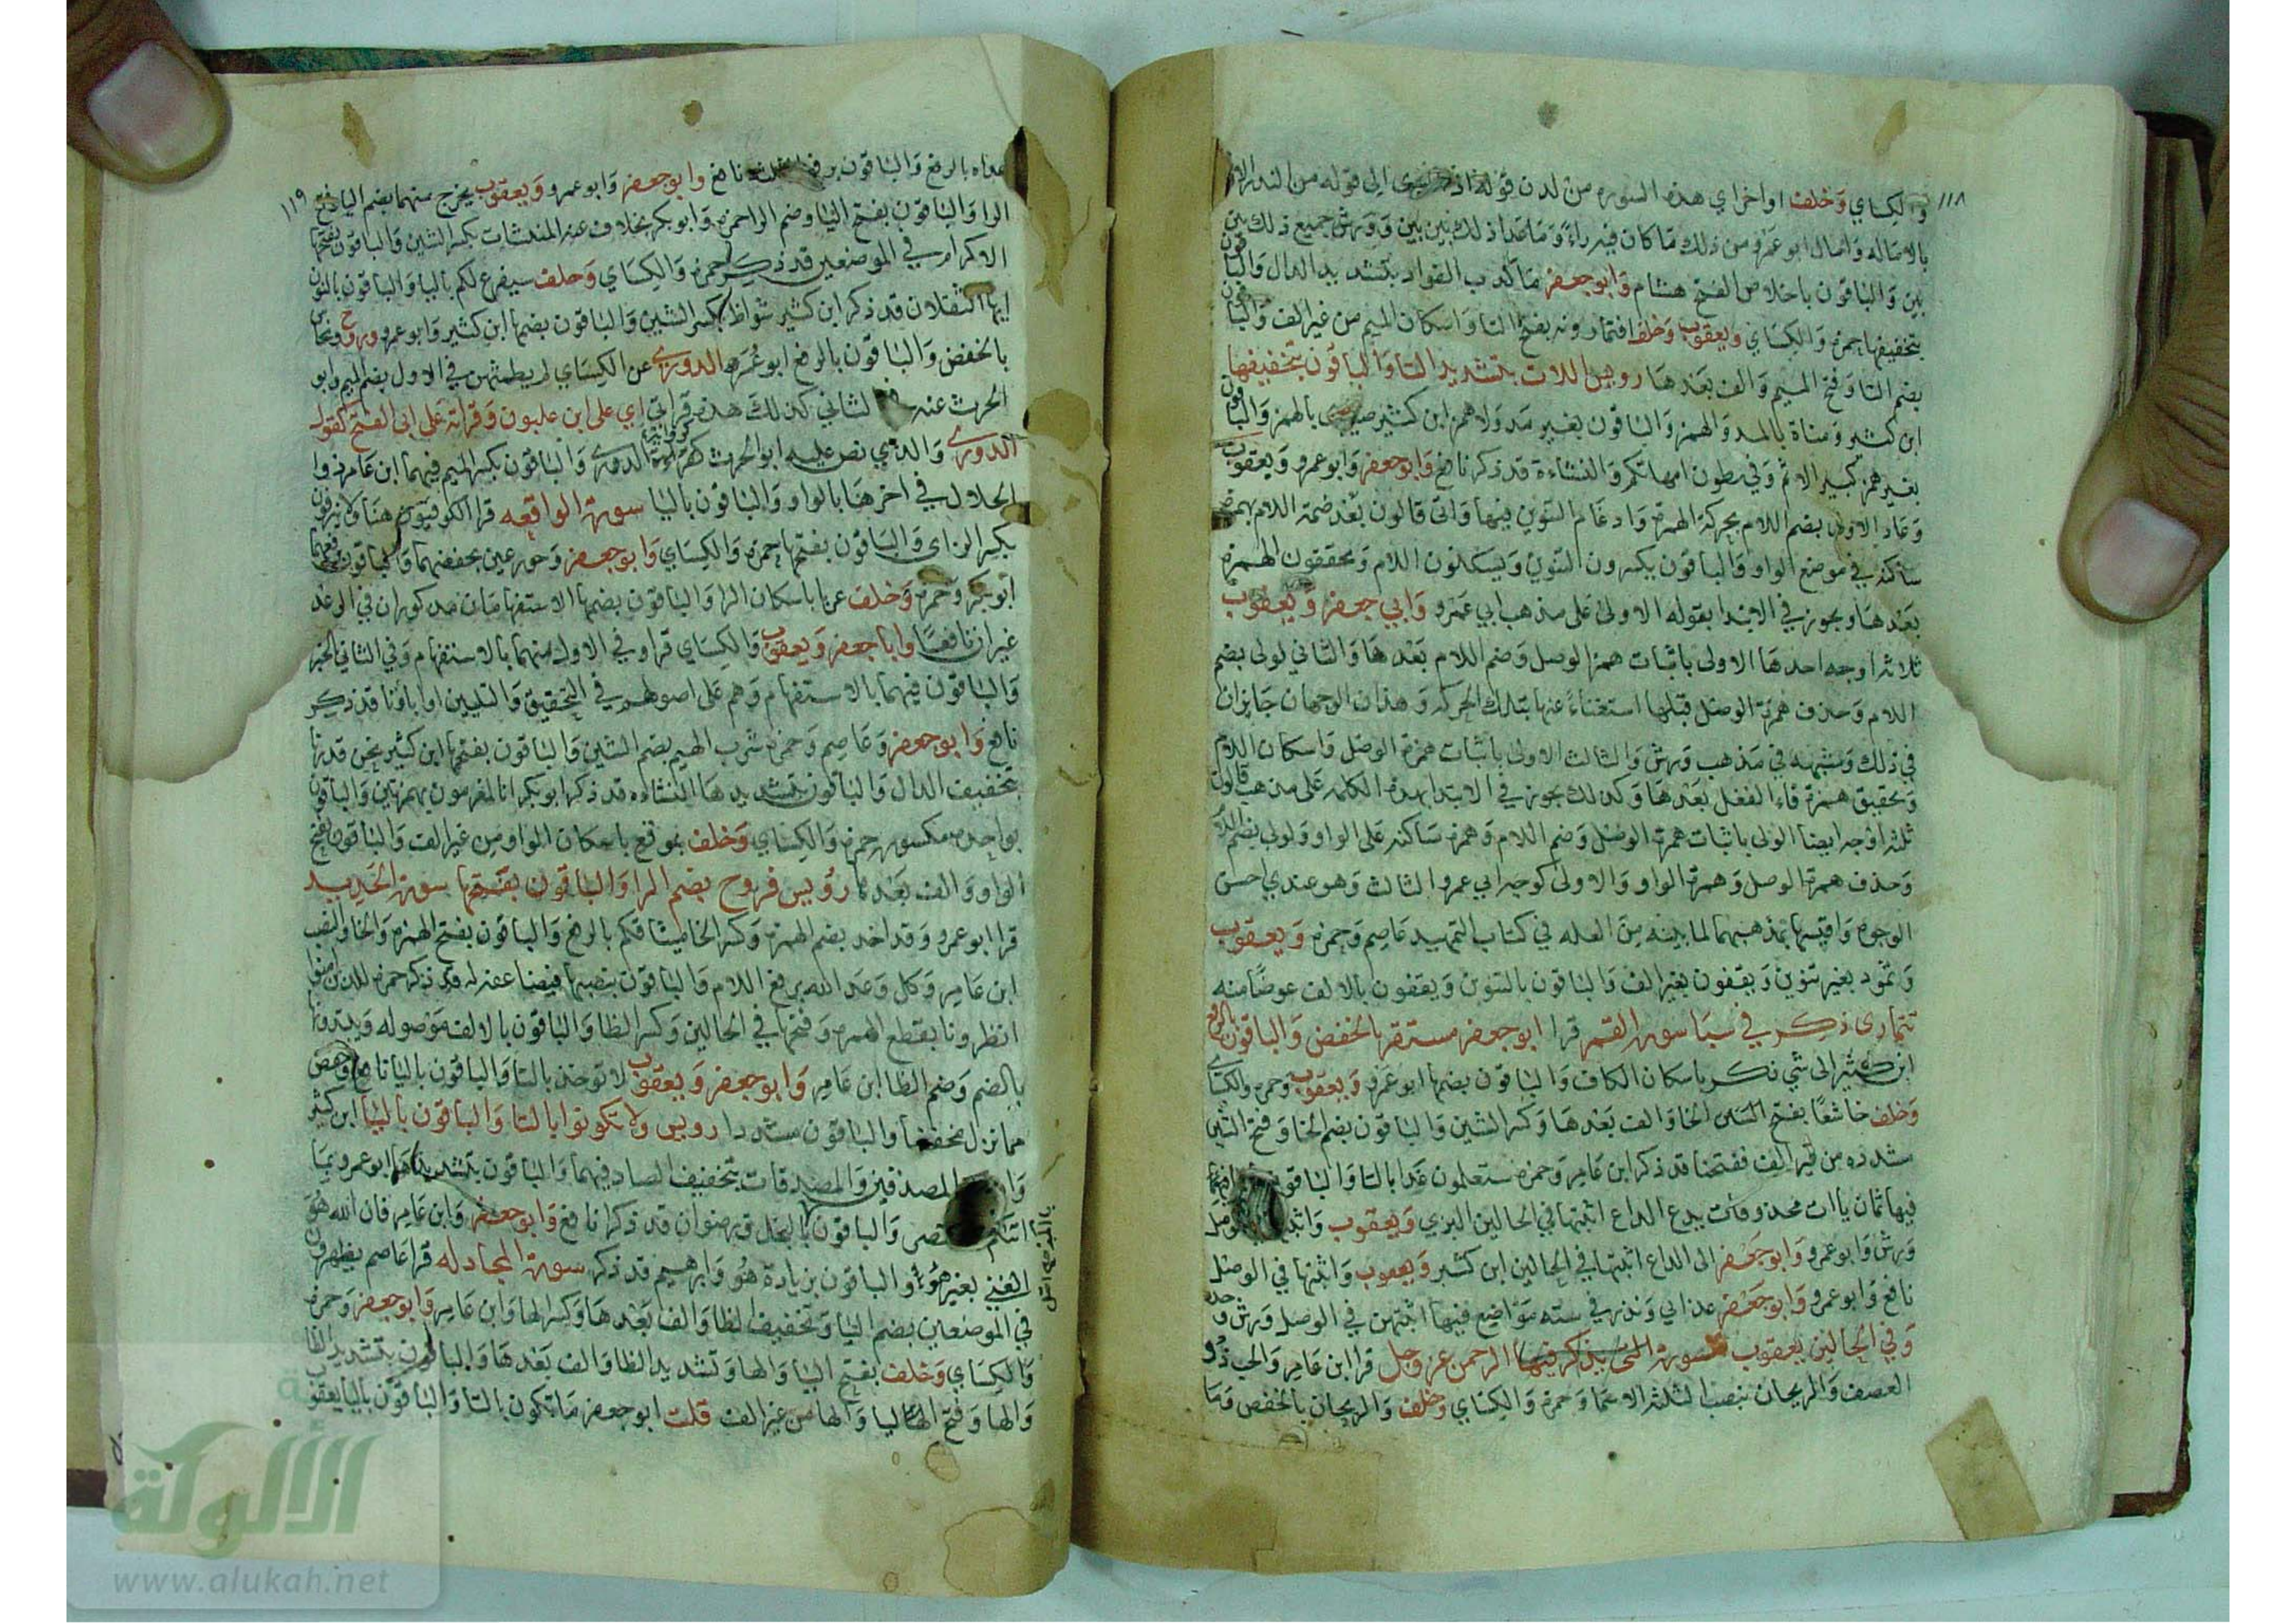 ١١٨
والكساي وخلف اواخر اي هذه السوره من لدن قوله اذا هوى الى قوله من النذر الاولى
بالاماله وامال ابو عمرو من ذلك ما كان فيه راء وما عدا ذلك بين بين وورش جميع ذلك بين
بين والباقون باخلاص الفتح هشام وابو جعفر ما كذب الفواد بتشديد الدال والباقون
بتخفيفها حمزه والكساي ويعقوب وخلف افتمارونه بفتح التا واسكان الميم من غير الف والباقون
بضم التا وفتح الميم والف بعدها رويس اللات بتشديد التا والباقون بتخفيفها
ابن كثير ومناة بالمد والهمز والباقون بغير مد ولا همز ابن كثير ضيزى بالهمز والباقون
بغير همز كبير الاثم وفي بطون امهاتكم والنشاءة قد ذكر نافع وابو جعفر وابو عمرو ويعقوب
وعاد الاولى بضم اللام بحركة الهمزة وادغام التنوين فيها واتى قالون بعد ضمة اللام بهمزة
ساكنه في موضع الواو والباقون يكسرون التنوين ويسكنون اللام ويحققون الهمزه
بعدها ويجوز في الابتدا بقوله الاولى على مذهب ابي عمرو وابي جعفر ويعقوب
ثلاثه اوجه احدها الاولى باثبات همزة الوصل وضم اللام بعدها والثاني لولى بضم
اللام وحذف همزة الوصل قبلها استغناءً عنها بتلك الحركه وهذان الوجهان جايزان
في ذلك وشبهه في مذهب ورش والثالث الاولى باثبات همزة الوصل واسكان اللام
وتحقيق همزة فاء الفعل بعدها وكذلك يجوز في الابتدا بهذه الكلمه على مذهب قالون
ثلثه اوجه ايضا الولى باثبات همزة الوصل وضم اللام وهمزه ساكنه على الواو ولولى بضم اللام
وحذف همزة الوصل وهمزة الواو والاولى كوجه ابي عمرو الثالث وهو عندي احسن
الوجوه واقيسها بمذهبهما لما بينته من العله في كتاب التمهيد عاصم وحمزه ويعقوب
وثمود بغير تنوين ويقفون بغير الف والباقون بالتنوين ويقفون بالالف عوضًا منه
تتمارى ذكر في سبا سورة القمر قرا ابو جعفر مستقر بالخفض والباقون بالرفع
ابن كثير الى شي نكر باسكان الكاف والباقون بضمها ابو عمرو ويعقوب وحمزه والكساي
وخلف خاشعًا بفتح الخا والف بعدها وكسر الشين والباقون بضم الخا وفتح الشين
مشدده من غير الف ففتحنا قد ذكر ابن عامر وحمزه ستعلمون غدا بالتا والباقون
فيها ثمان ياات محذوفات يدع الداع اثبتها في الحالين البزي ويعقوب
ورش وابو عمرو وابو جعفر الى الداع اثبتها في الحالين ابن كثير ويعقوب واثبتها في الوصل
نافع وابو عمرو وابو جعفر عذابي ونذر في سته مواضع فيها اثبتهن في الوصل ورش وحده
وفي الحالين يعقوب سورة التي يذكر فيها الرحمن عز وجل قرا ابن عامر والحب ذو
العصف والريحان بنصب الثلثه الاسما وحمزه والكساي وخلف والريحان بالخفض وما
١١٩
عداه بالرفع والباقون برفع نافع وابو جعفر وابو عمرو ويعقوب يخرج منهما بضم اليا وفتح
الرا والباقون بفتح اليا وضم الرا حمزه وابو بكر بخلاف عنه المنشئات بكسر الشين والباقون بفتحها
الاكرام في الموضعين قد ذكر حمزه والكساي وخلف سيفرغ لكم باليا والباقون بالنون
ايها الثقلان قد ذكر ابن كثير شواظ بكسر الشين والباقون بضمها ابن كثير وابو عمرو وروح ونحاس
بالخفض والباقون بالرفع ابو عمر الدوري عن الكساي لم يطمثهن في الاول بضم الميم وابو
الحرث عنه في الثاني كذلك هذه قراتي اي على ابن غلبون وقراته على ابي الفتح كقول
الدوري والذي نص عليه ابو الحرث كرواية الدوري والباقون بكسر الميم فيهما ابن عامر ذوا
الجلال في اخرها بالواو والباقون باليا سورة الواقعه قرا الكوفيون هنا ولا ينزفون
بكسر الزاى والباقون بفتحها حمزه والكساي وابو جعفر وحور عين بخفضهما والباقون برفعهما
ابو بكر وحمزه وخلف عربا باسكان الرا والباقون بضمها الاستفهامان مذكوران في الرعد
غير ان نافعًا وابا جعفر ويعقوب والكساي قراو في الاول منهما بالاستفهام وفي الثاني الخبر
والباقون فيهما بالاستفهام وهم على اصولهم في التحقيق والتليين او اباؤنا قد ذكر
نافع وابو جعفر وعاصم وحمزه شرب الهيم بضم الشين والباقون بفتحها ابن كثير نحن قدرنا
بتخفيف الدال والباقون بتشديدها النشاءه قد ذكر ابو بكر ءانا لمغرمون بهمزتين والباقون
بواحده مكسوره حمزه والكساي وخلف بموقع باسكان الواو من غير الف والباقون بفتح
الواو والف بعدها رويس فروح بضم الرا والباقون بفتحها سورة الحديد
قرا ابو عمرو وقد اخذ بضم الهمزه وكسر الخا ميثاقكم بالرفع والباقون بفتح الهمزه والخا والنصب
ابن عامر وكل وعد الله برفع اللام والباقون بنصبها فيضاعفه له قد ذكر حمزه للذين امنوا
انظرونا بقطع الهمزه وفتحها في الحالين وكسر الظا والباقون بالالف موصوله ويبتدونها
بالضم وضم الظا ابن عامر وابو جعفر ويعقوب لا توخذ بالتا والباقون باليا نافع وحفص
مما نزل مخففًا والباقون مشددا رويس ولا تكونوا بالتا والباقون باليا ابن كثير
المصدقين والمصدقات بتخفيف الصاد فيهما والباقون بتشديدها ابو عمرو بما
اتاكم والباقون بالبخل ورضوان قد ذكرا نافع وابو جعفر وابن عامر فان الله هو
الغني بغير هو والباقون بزيادة هو وابرهيم قد ذكر سورة المجادله قرا عاصم يظهرون
في الموضعين بضم اليا وتخفيف الظا والف بعدها وكسر الها وابن عامر وابو جعفر وحمزه
والكساي وخلف بفتح اليا والها وتشديد الظا والف بعدها والباقون بتشديد الظا
والها وفتح اليا والها من غير الف قلت ابو جعفر ما تكون بالتا والباقون باليا يعقوب
الألوكة
www.alukah.net